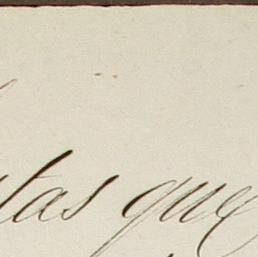 tas que